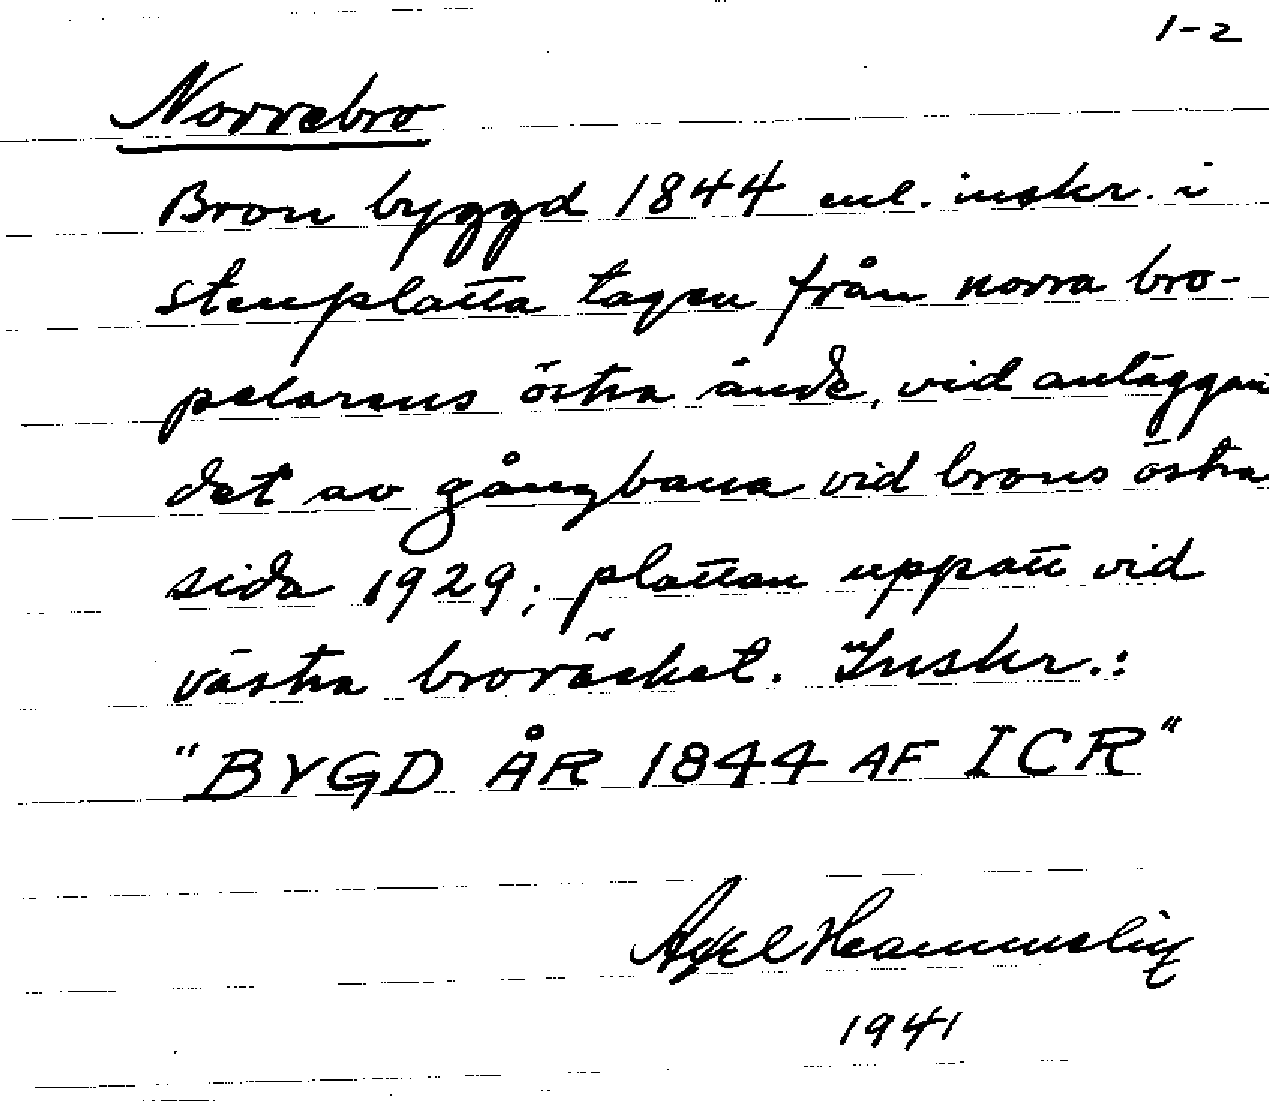 1-2
Norrebro
Bron byggd 1844 enl. inskr. i
stenplatta tagen från norra bro-
pelarens östra ände, vid anläggan
det av gångbana vid brons östra
sida 1929; plattan uppsatt vid
västra broräcket. Inskr.:
"BYGD ÅR 1844 AF ICR"
Axel
1941